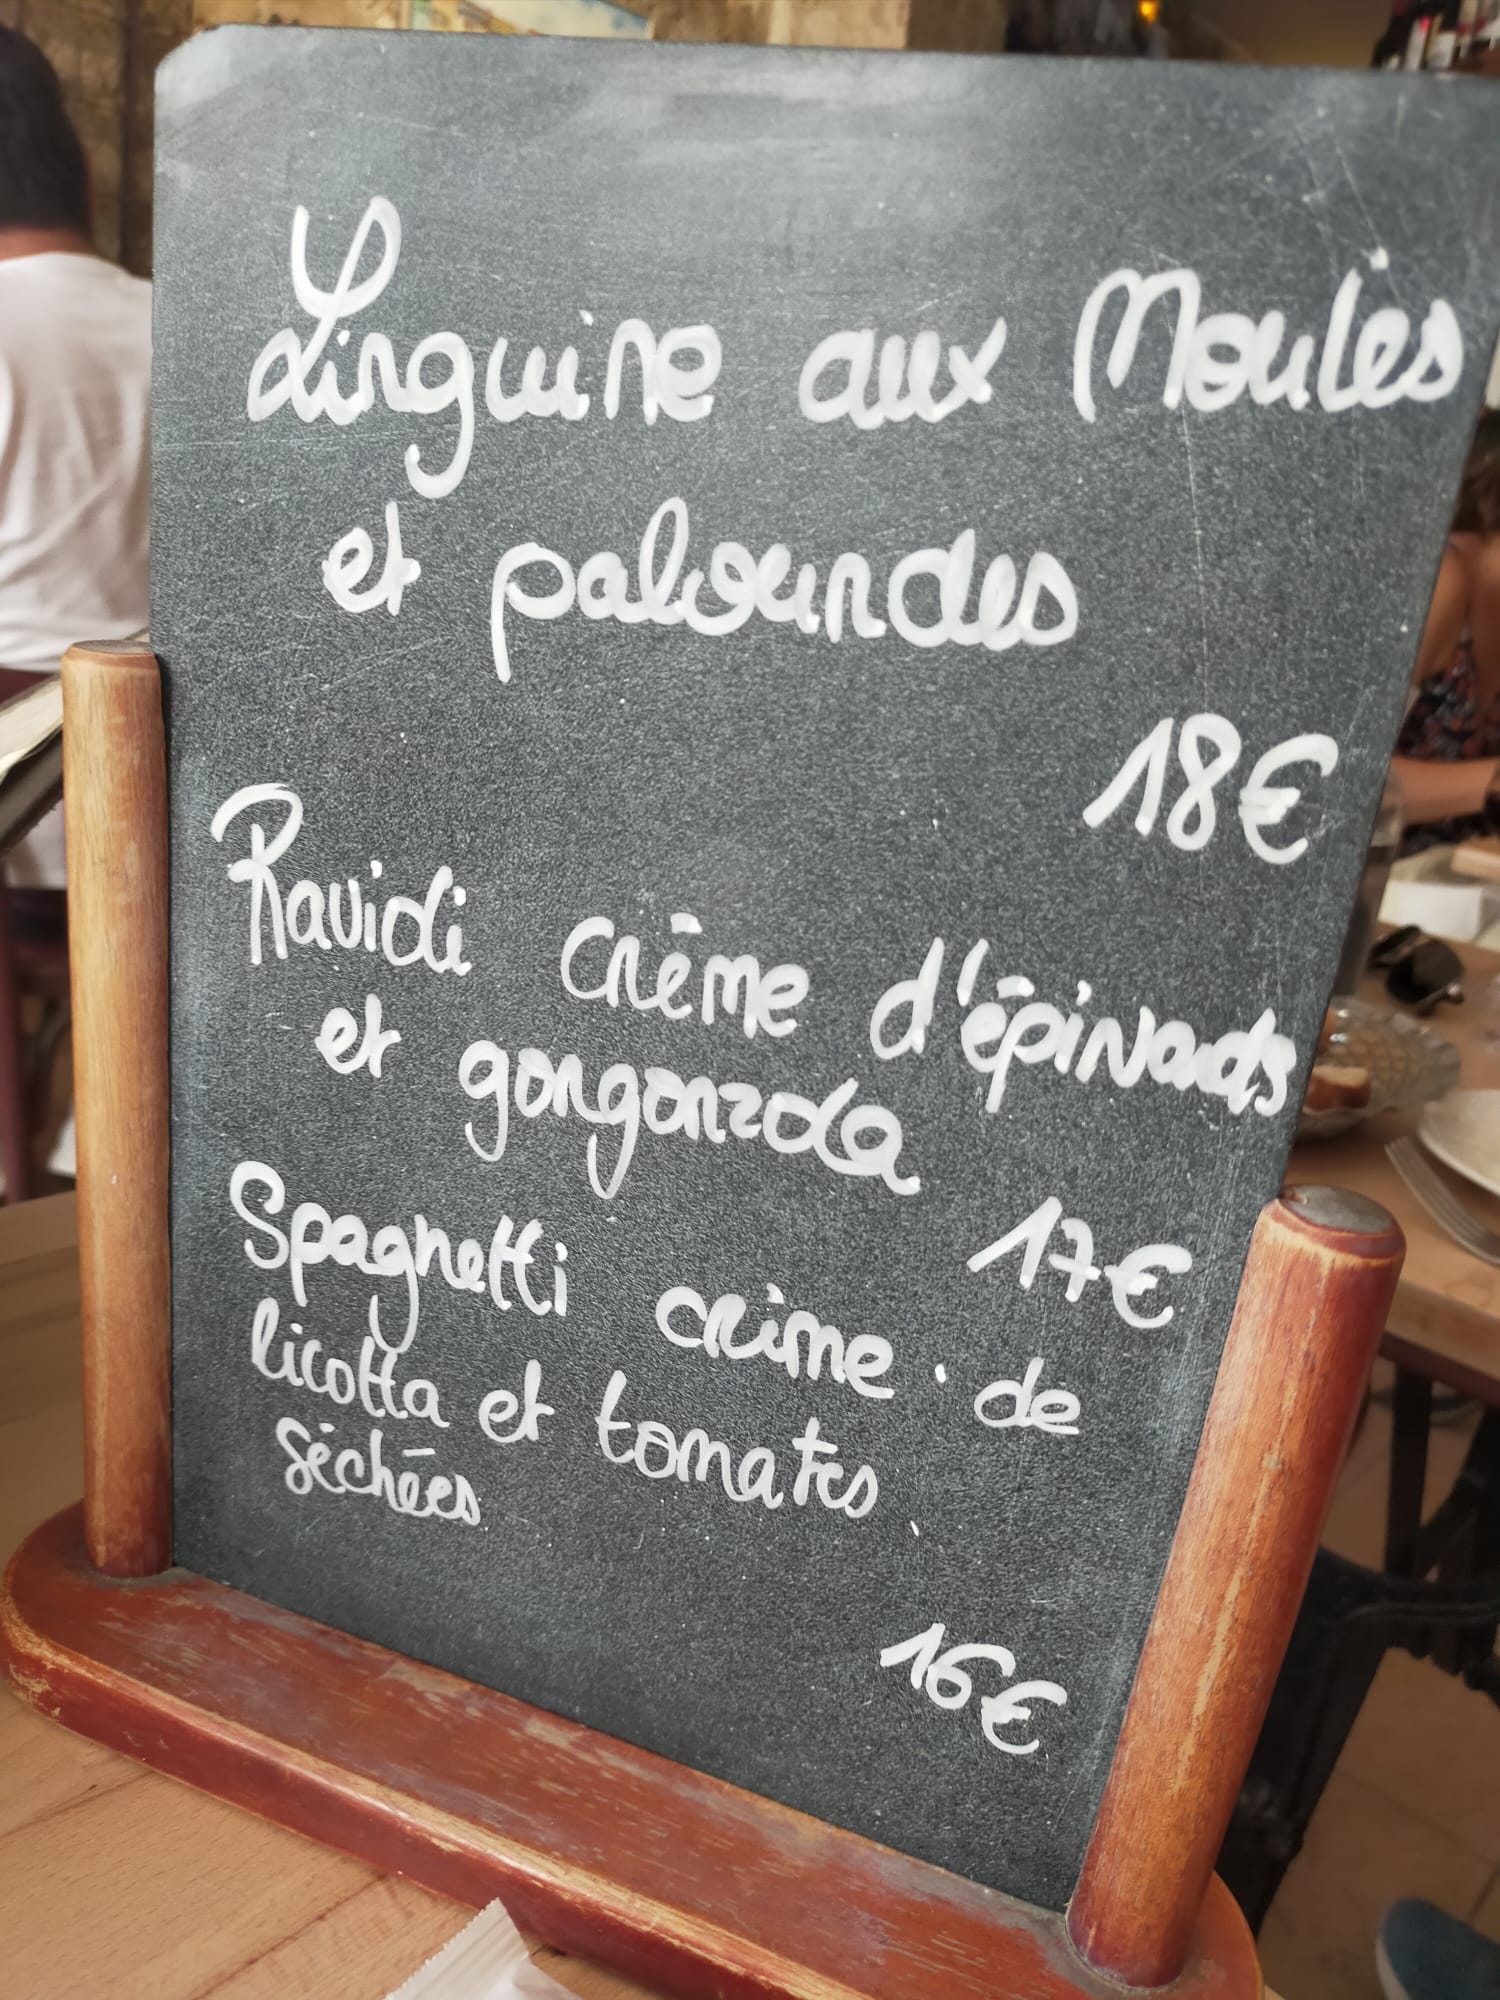 Linguine aux Moules
et palourdes
18€
Ravioli crème d'épinards
et gorgonzola
17€
Spaghetti crème de
ricotta et tomates
séchées
16€